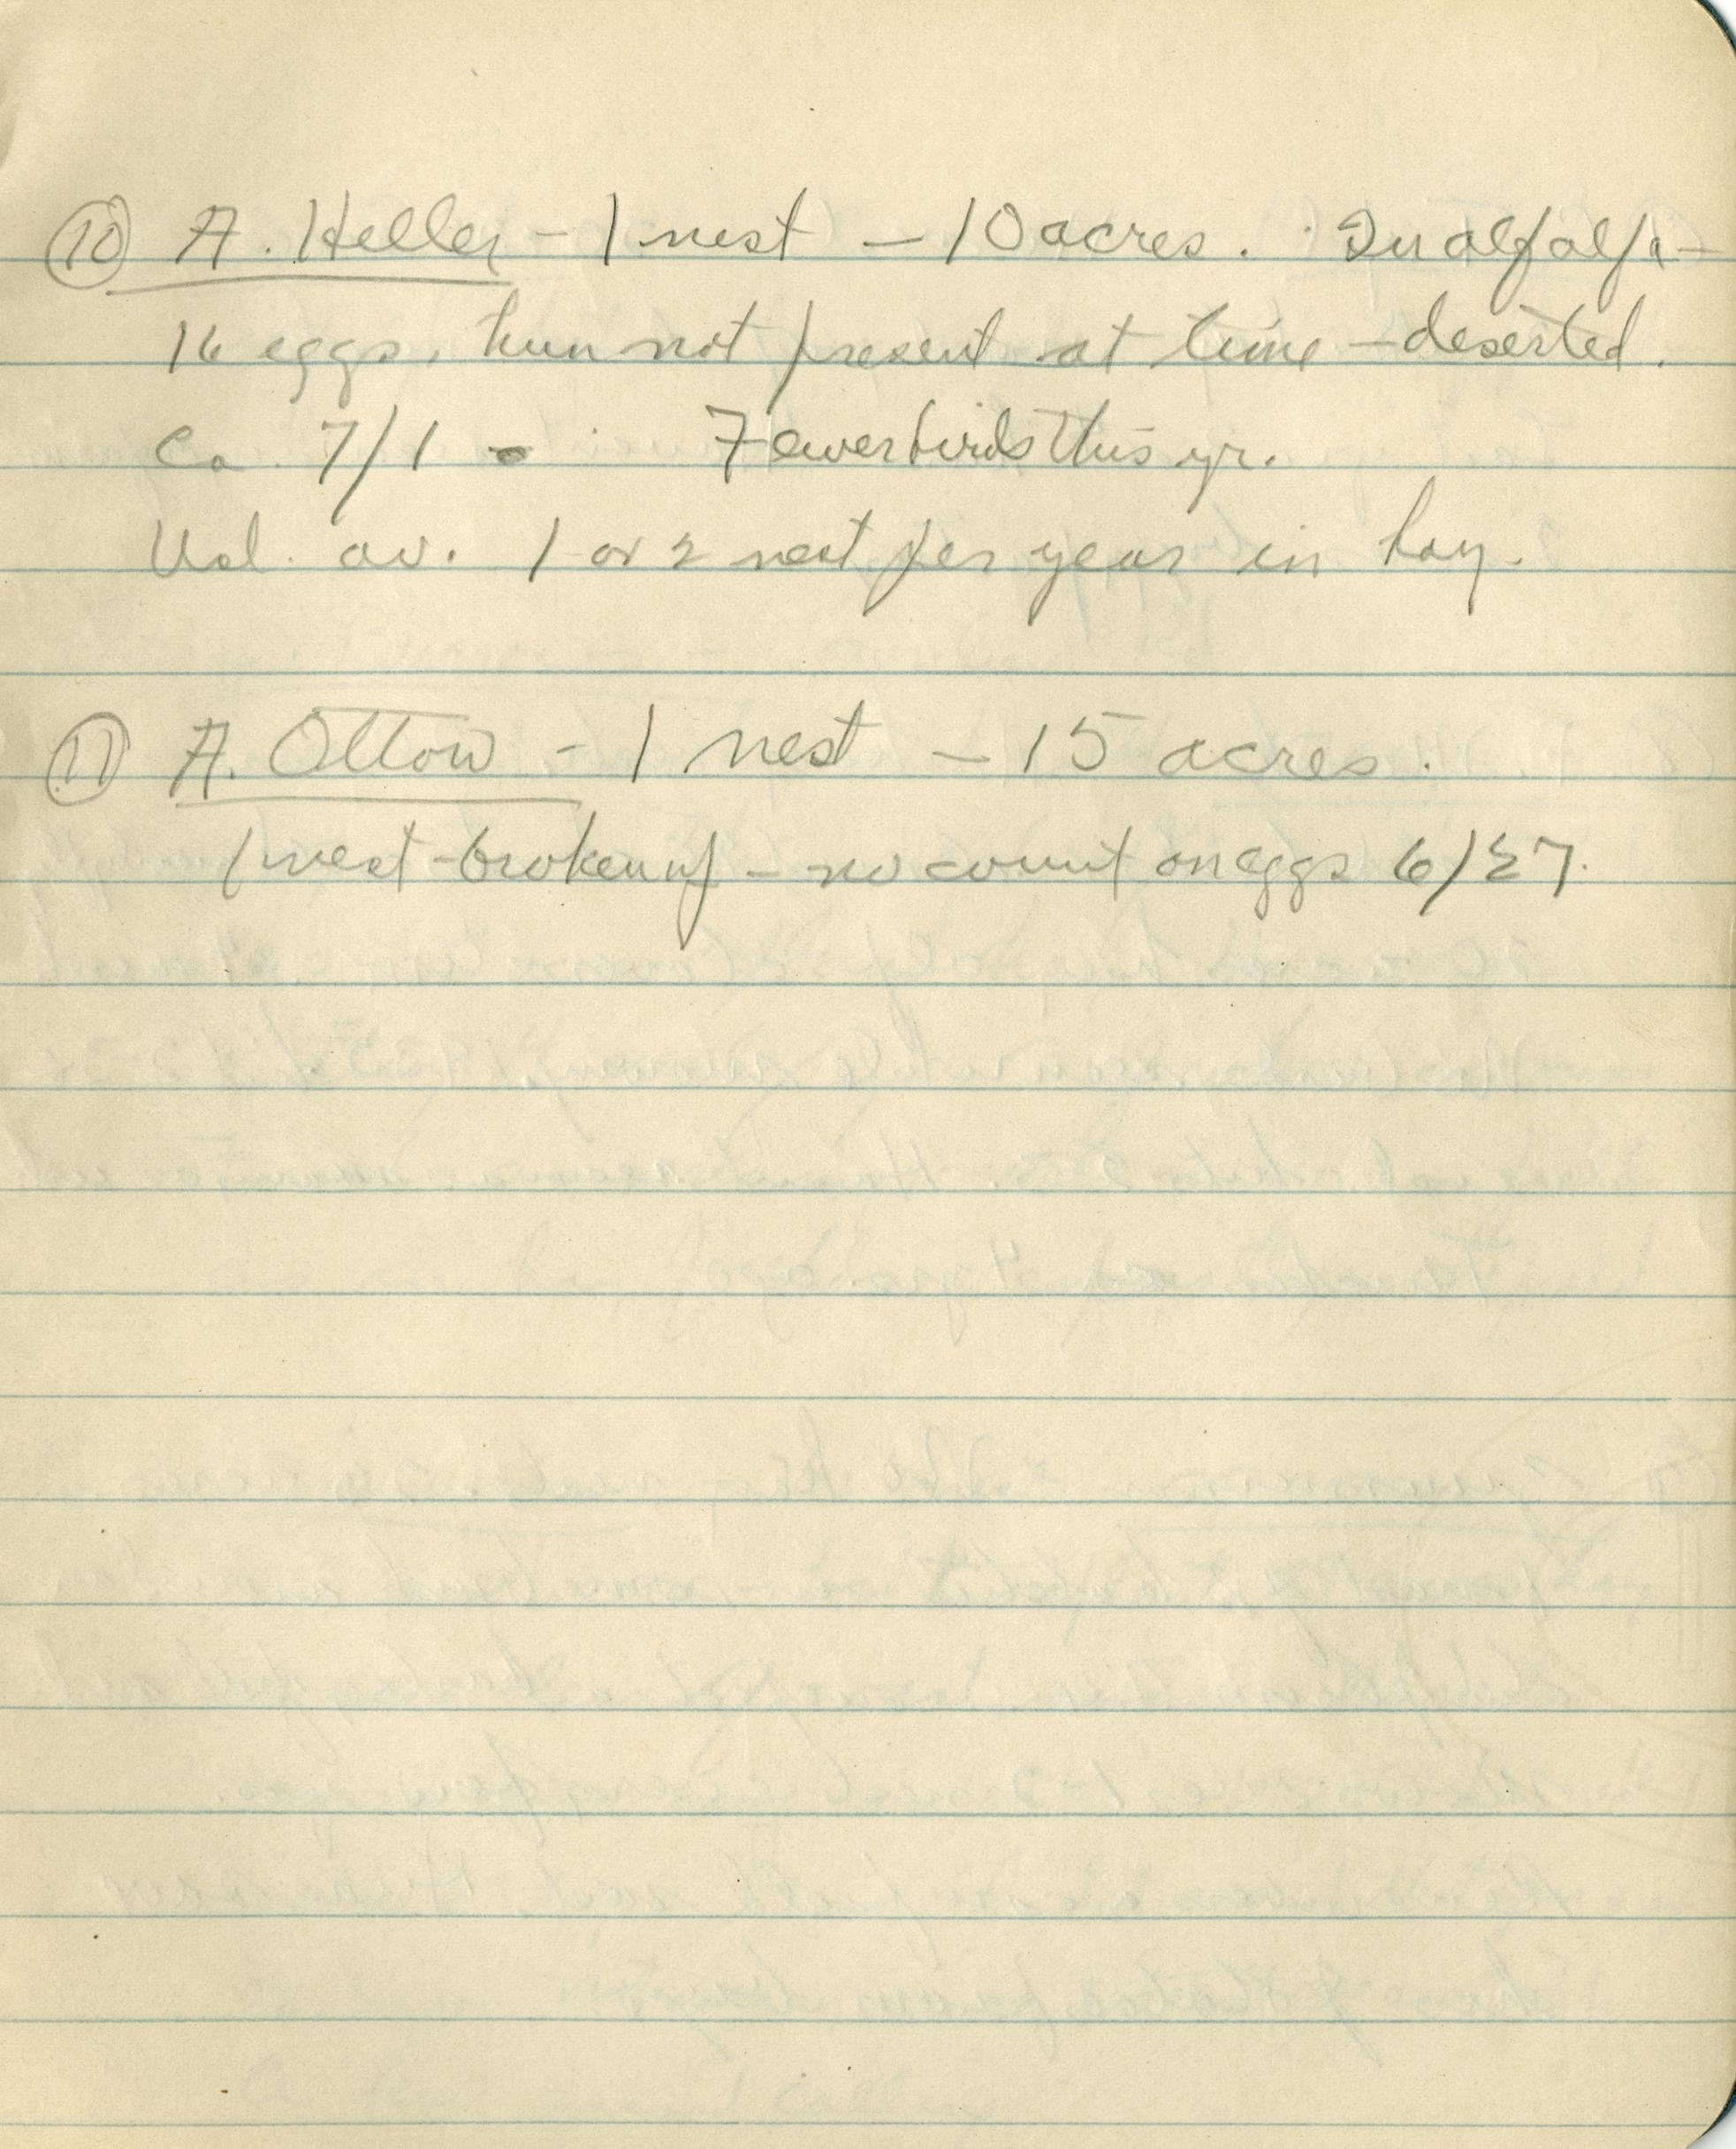 (10) A. Heller - 1 nest - 10 acres. In alfalfa -
16 eggs, hen not present at time - deserted.
Ca 7/1 - Fewer birds this yr.
Usl. av. 1 or 2 nest per year in hay.
(11) A. Ottow - 1 nest - 15 acres.
1 nest - broken up - no count on eggs 6/27.